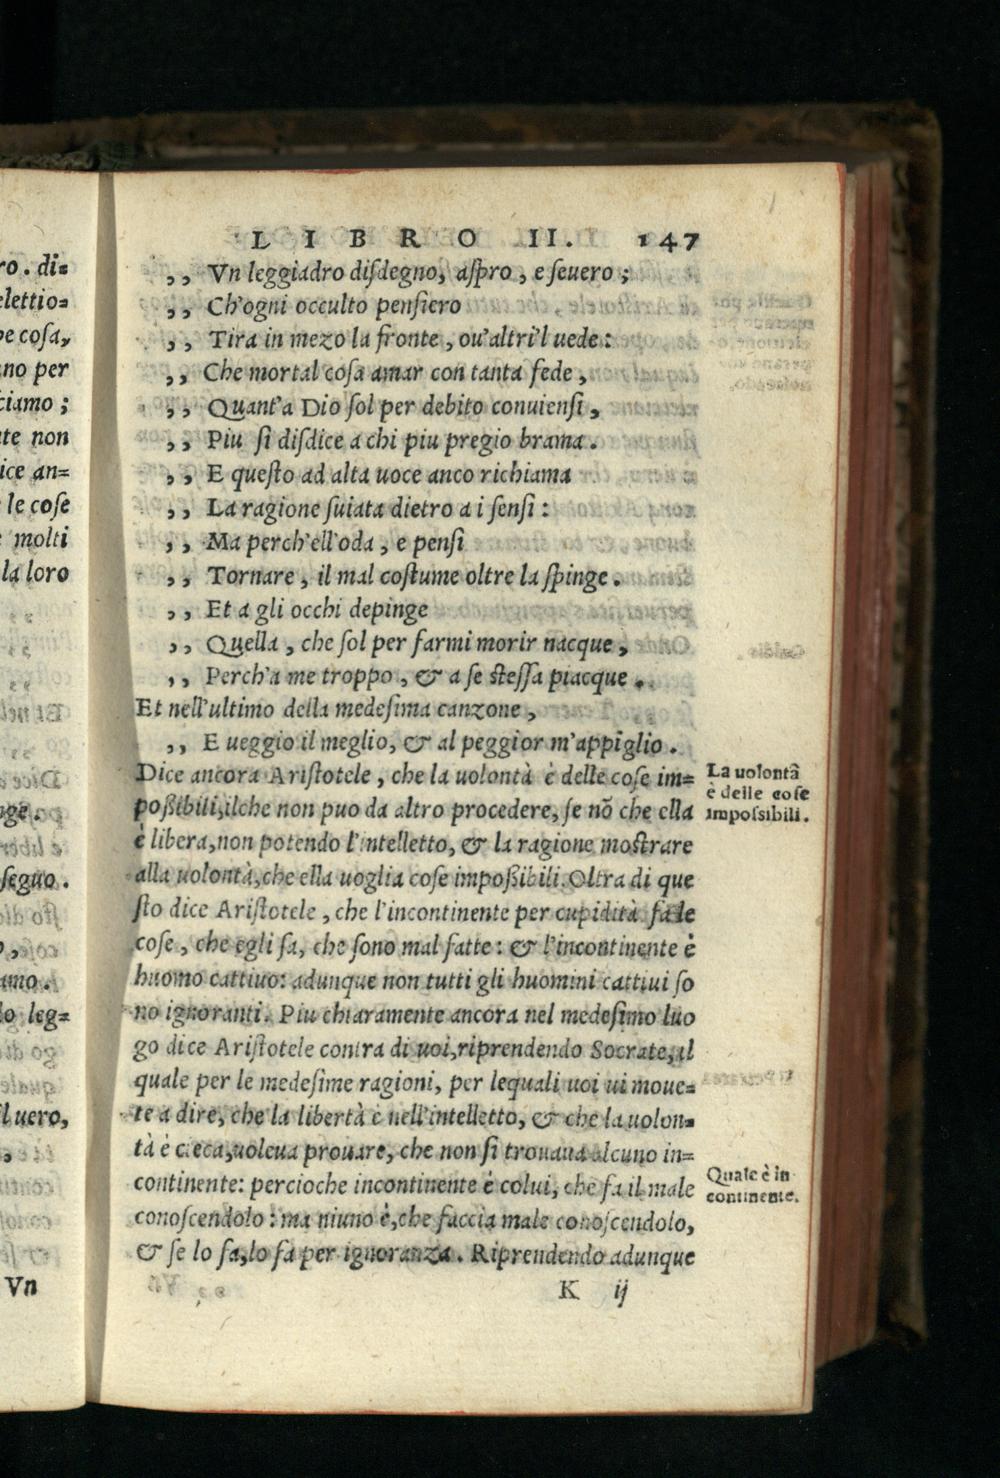 ro. di=
elettio=
pe cosa,
no per
ciamo ;
te non
ice an=
le cose
molti
la loro
nge.
seguo.
amo.
lo leg=
l uero,
Vn
LIBRO II. 147
,, Vn leggiadro disdegno, aspro, e seuero ;
,, Ch'ogni occulto pensiero
,, Tira in mezo la fronte, ou'altri'l uede :
,, Che mortal cosa amar con tanta fede,
,, Quant'a Dio sol per debito conuiensi,
,, Piu si disdice a chi piu pregio brama.
,, E questo ad alta uoce anco richiama
,, La ragione suiata dietro a i sensi :
,, Ma perch'ell'oda, e pensi
,, Tornare, il mal costume oltre la spinge.
,, Et a gli occhi depinge
,, Quella, che sol per farmi morir nacque,
,, Perch'a me troppo, & a se stessa piacque.
Et nell'ultimo della medesima canzone,
,, E ueggio il meglio, & al peggior m'appiglio.
Dice ancora Aristotele, che la uolontà è delle cose im=
possibili, ilche non puo da altro procedere, se nõ che ella
è libera, non potendo l'intelletto, & la ragione mostrare
alla uolontà, che ella uoglia cose impossibili. Oltra di que
sto dice Aristotele, che l'incontinente per cupidità fa le
cose, che egli fa, che sono mal fatte : & l'incontinente è
huomo cattiuo: adunque non tutti gli huomini cattiui so
no ignoranti. Piu chiaramente ancora nel medesimo luo
go dice Aristotele contra di uoi, riprendendo Socrate, il
quale per le medesime ragioni, per lequali uoi ui moue=
te a dire, che la libertà è nell'intelletto, & che la uolon=
tà è cieca, uoleua prouare, che non si trouaua alcuno in=
continente: percioche incontinente è colui, che fa il male
conoscendolo : ma niuno è, che faccia male conoscendolo,
& se lo fa, lo fa per ignoranza. Riprendendo adunque
K ij
La uolontà
è delle cose
impossibili.
Quale è in
continente.